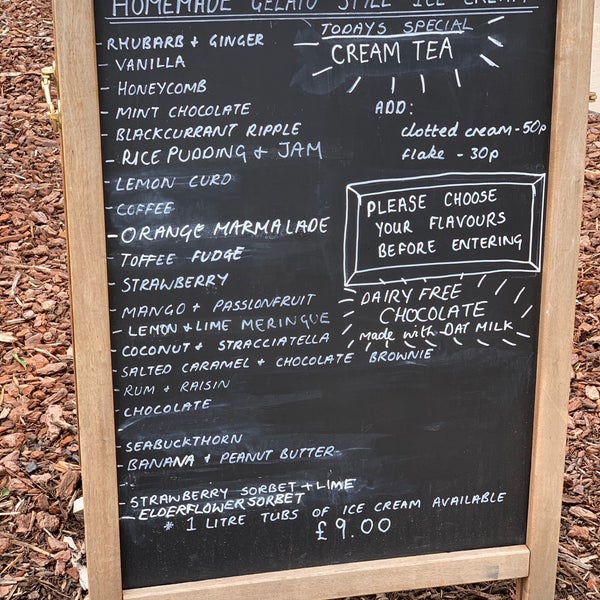 HOMEMADE GELATO STYLE ICE CREAM
- RHUBARB + GINGER
- VANILLA
- HONEYCOMB
- MINT CHOCOLATE
- BLACKCURRANT RIPPLE
- RICE PUDDING + JAM
- LEMON CURD
- COFFEE
- ORANGE MARMALADE
- TOFFEE FUDGE
- STRAWBERRY
- MANGO + PASSIONFRUIT
- LEMON + LIME MERINGUE
- COCONUT + STRACCIATELLA
- SALTED CARAMEL + CHOCOLATE BROWNIE
- RUM + RAISIN
- CHOCOLATE
- SEABUCKTHORN
- BANANA + PEANUT BUTTER
- STRAWBERRY SORBET + LIME
- ELDERFLOWER SORBET
* 1 LITRE TUBS OF ICE CREAM AVAILABLE
£9.00
TODAYS SPECIAL
CREAM TEA
ADD:
clotted cream - 50p
flake - 30p
PLEASE CHOOSE
YOUR FLAVOURS
BEFORE ENTERING
DAIRY FREE
CHOCOLATE
made with OAT MILK